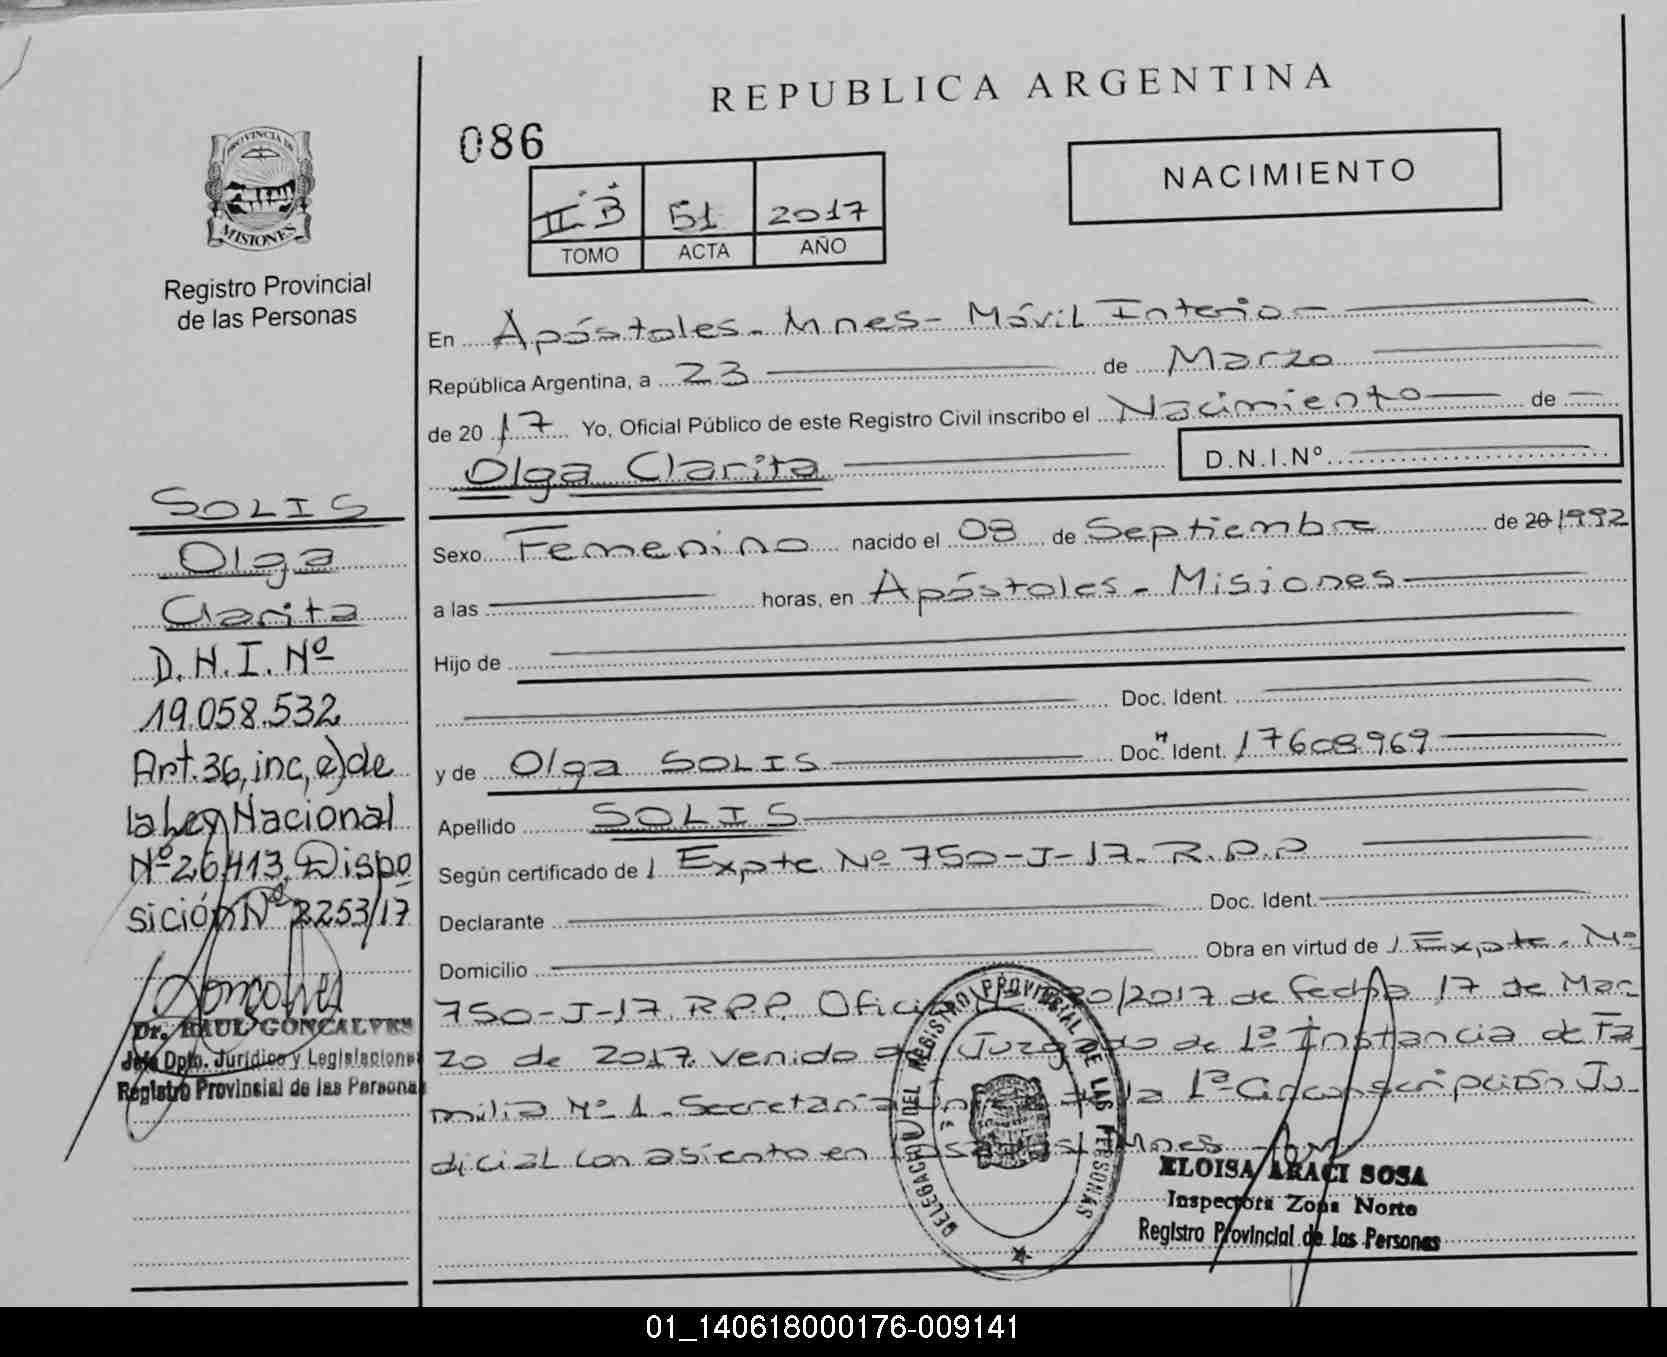 REPUBLICA ARGENTINA
086
NACIMIENTO
II B 51 2017
TOMO ACTA AÑO
PROVINCIA DE
MISIONES
Registro Provincial
de las Personas
SOLIS
Olga
Clarita
D.N.I. Nº
19.058.532
Art. 36, inc, e) de
la Ley Nacional
Nº 26.413. Dispo
sición Nº 2253/17
Dr. RAUL GONCALVES
Jefe Dpto. Jurídico y Legislaciones
Registro Provincial de las Personas
En Apóstoles - Mnes - Móvil Interio -
República Argentina, a 23 de Marzo
de 20 17 Yo, Oficial Público de este Registro Civil inscribo el Nacimiento de
Olga Clarita D.N.I.Nº
Sexo Femenino nacido el 08 de Septiembre de 20 1992
a las horas, en Apóstoles - Misiones
Hijo de
Doc. Ident.
y de Olga SOLIS Doc. Ident. 17608.969
Apellido SOLIS
Según certificado de Expte Nº 750-J-17. R.P.P
Declarante Doc. Ident.
Domicilio Obra en virtud de Expte. Nº
750-J-17 R.P.P. Oficio /2017 de fecha 17 de Mar
zo de 2017. venido del Juzgado de 1ª Instancia de Fa
milia Nº 1. Secretaria la 1ª Circunscripción Ju
dicial con asiento en Mnes
DELEGACION DEL REGISTRO PROVINCIAL DE LAS PERSONAS
ELOISA ARACI SOSA
Inspectora Zona Norte
Registro Provincial de las Personas
01_140618000176-009141